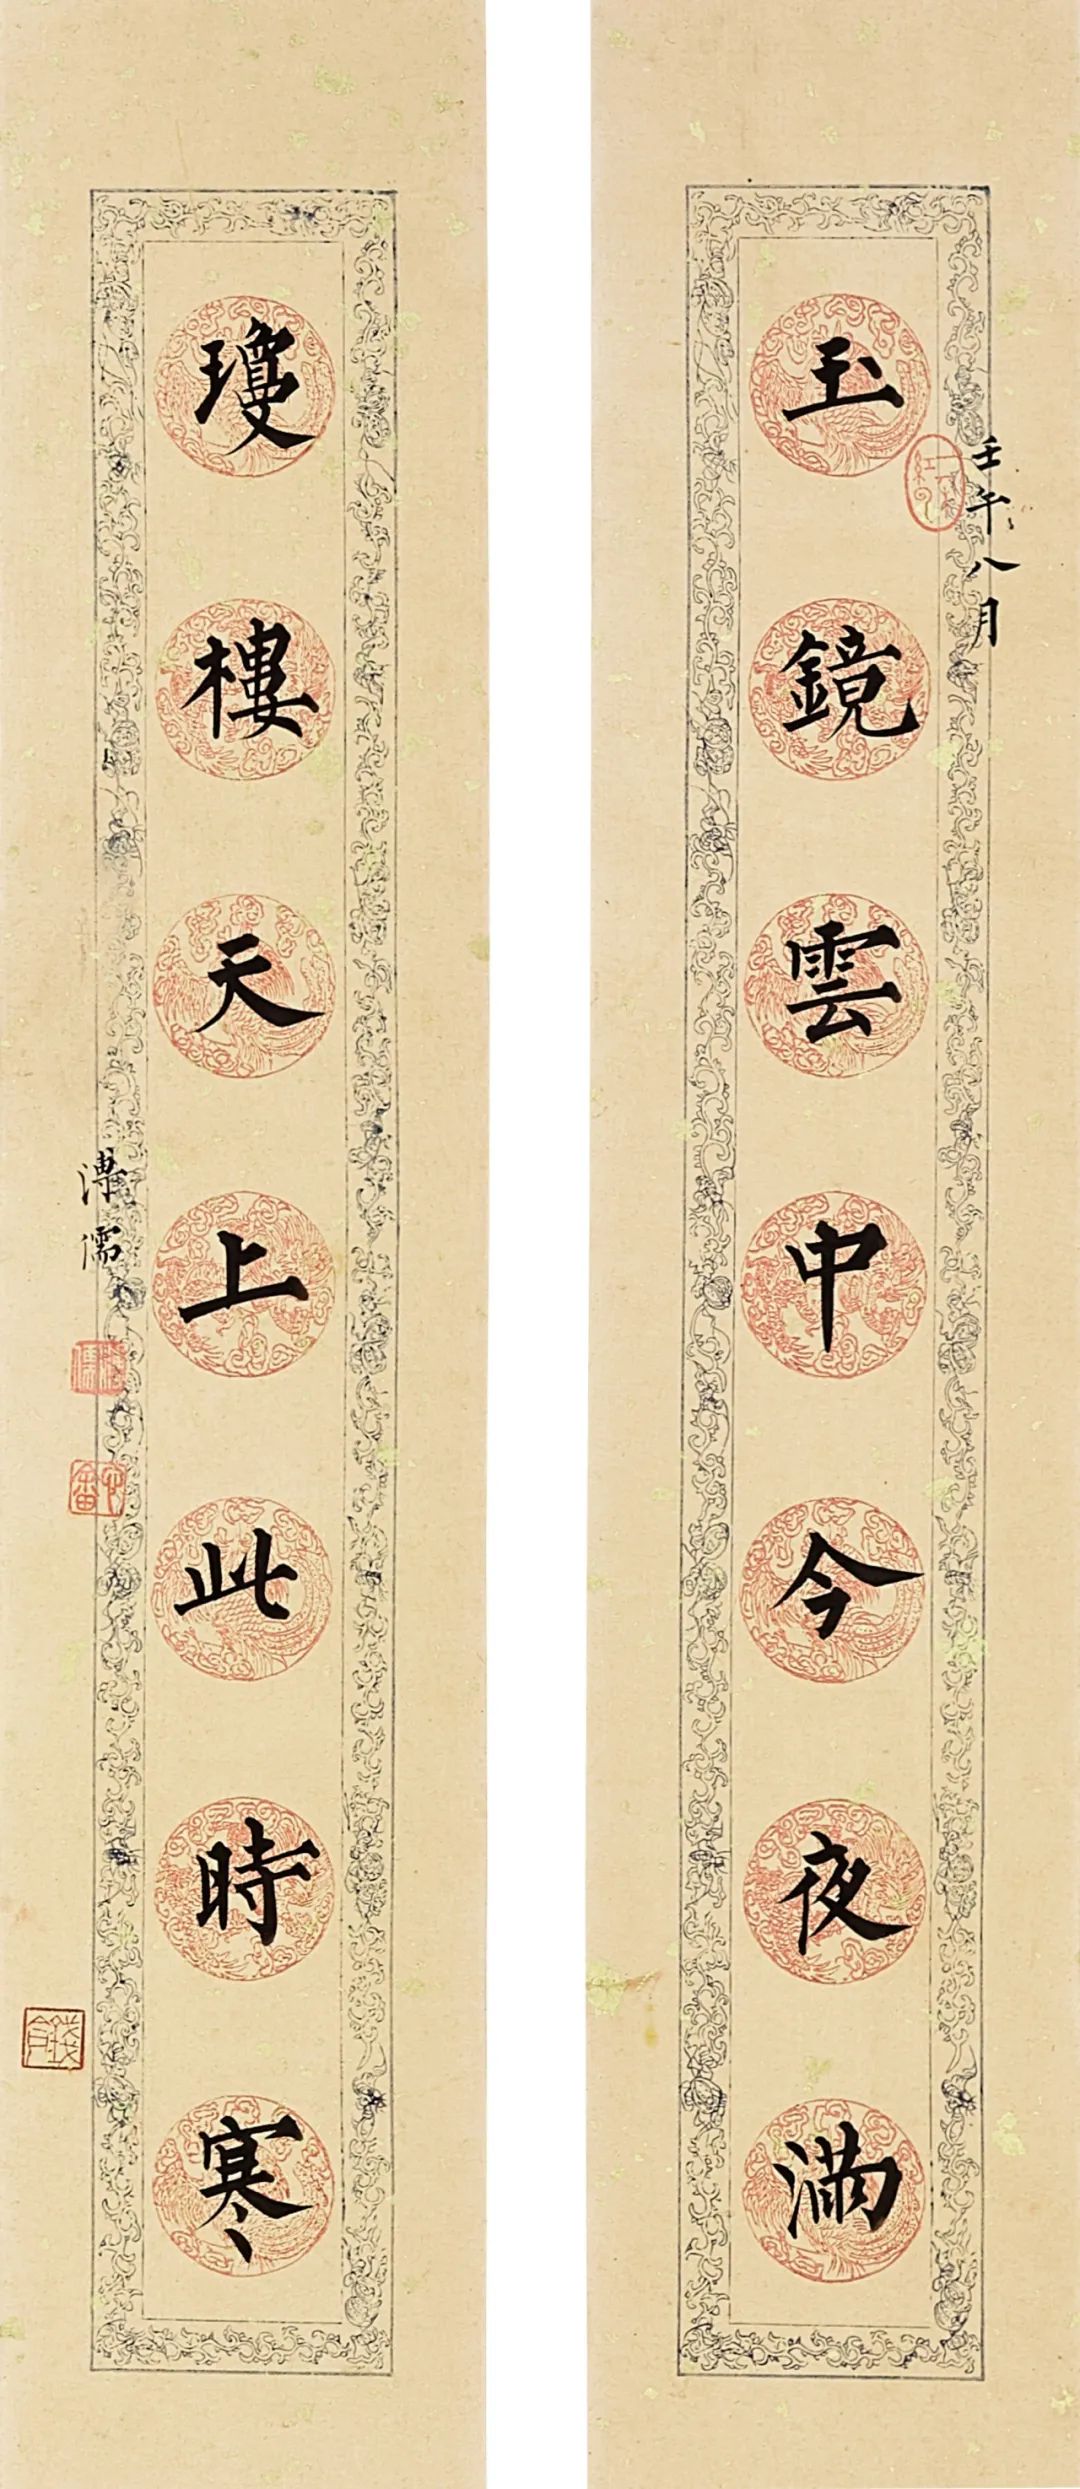 壬午八月
玉鏡雲中今夜滿
瓊樓天上此時寒
溥儒